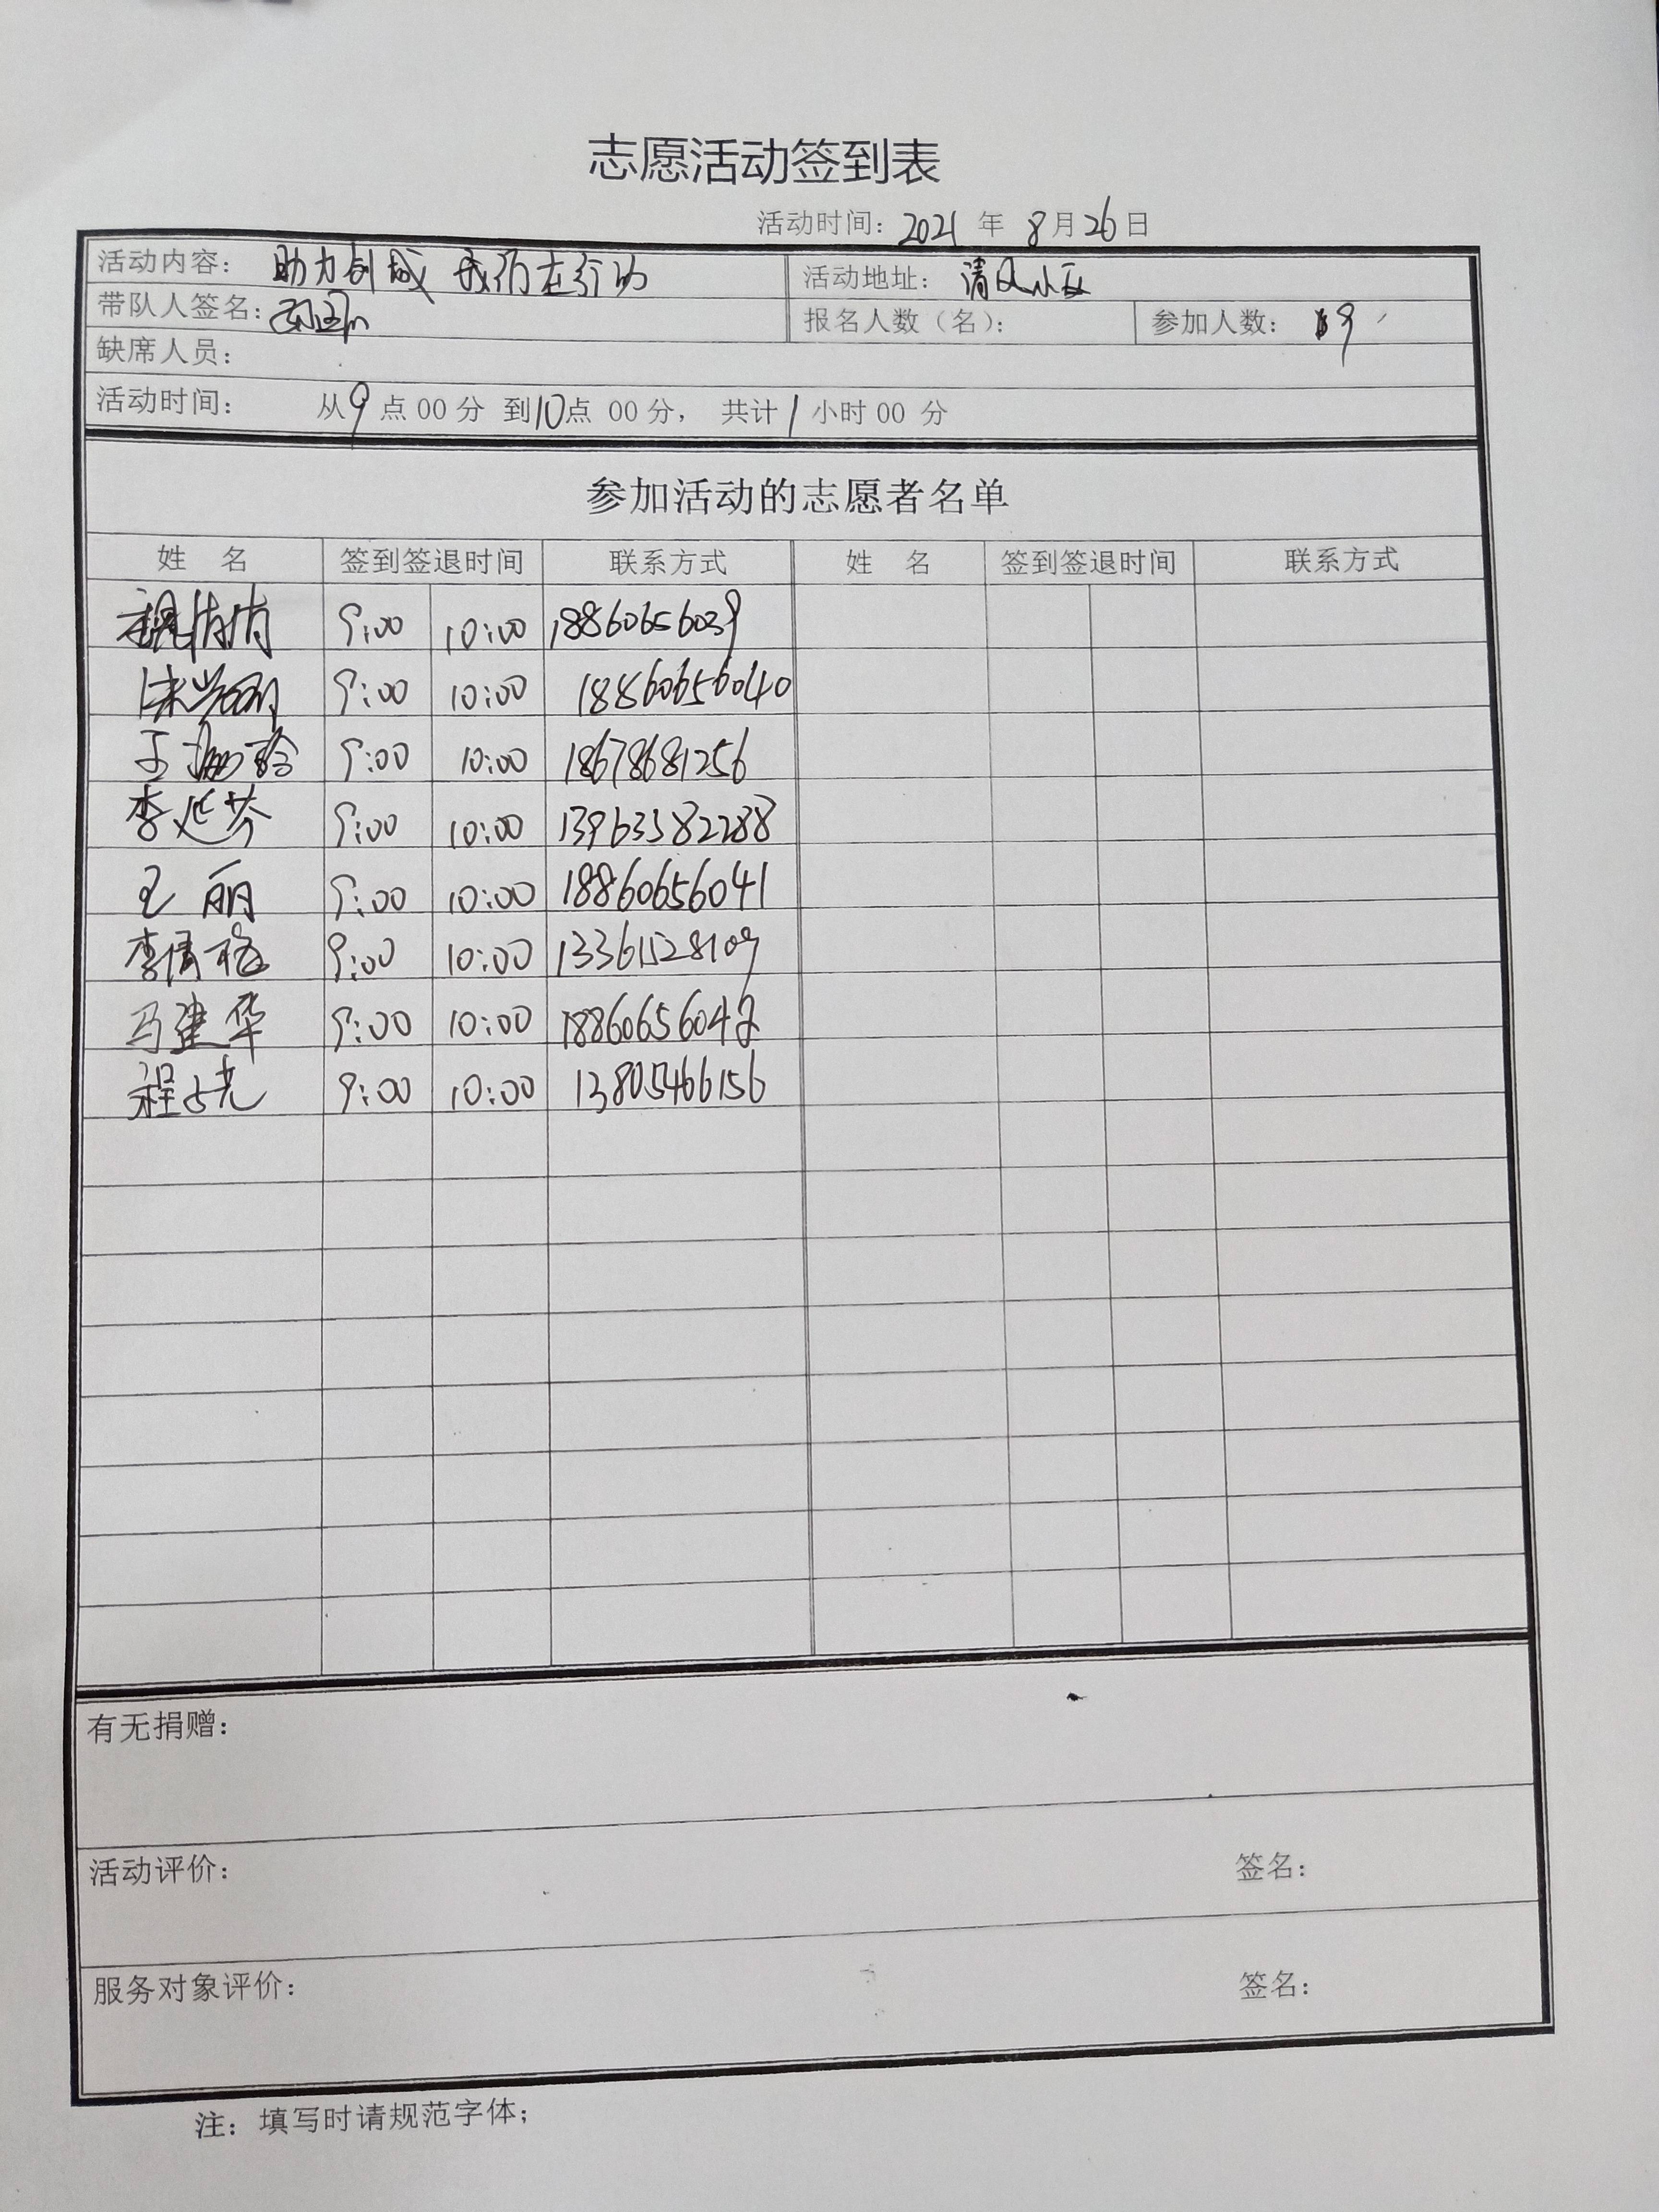 志愿活动签到表
活动时间：2021 年 8月26日
活动内容： 助力创城 我们在行动 活动地址： 清风小区
带队人签名： 报名人数（名）： 参加人数： 9
缺席人员：
活动时间： 从9点00分 到10点 00分， 共计1小时00 分
参加活动的志愿者名单
姓 名 签到签退时间 联系方式 姓 名 签到签退时间 联系方式
魏倩倩 9:00 10:00 18860656039
9:00 10:00 18860656040
于 9:00 10:00 18678681256
李延芬 9:00 10:00 13963582288
王丽 9:00 10:00 18860656041
李倩 9:00 10:00 13361528109
马建华 9:00 10:00 1886065604
程占光 9:00 10:00 13805466156
有无捐赠：
活动评价： 签名：
服务对象评价： 签名：
注：填写时请规范字体；